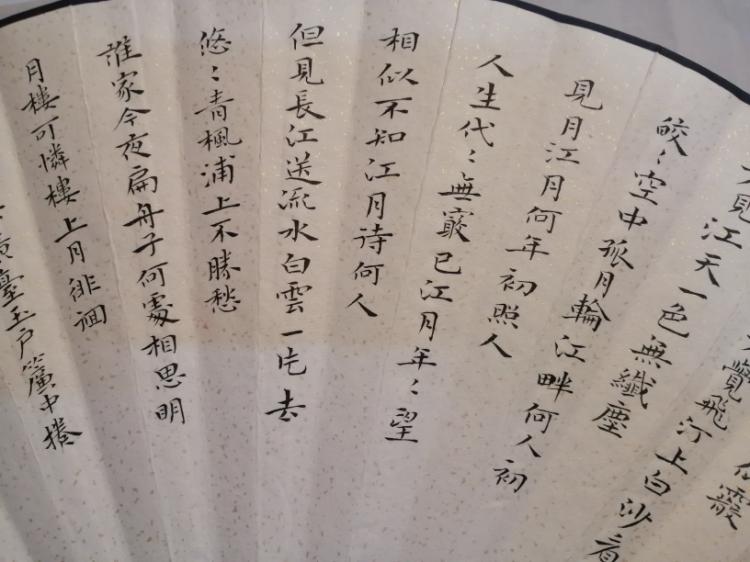 似霰
覺飛汀上白沙看
見江天一色無纖塵
皎〻空中孤月輪江畔何人初
見月江月何年初照人
人生代〻無窮已江月年〻望
相似不知江月待何人
但見長江送流水白雲一片去
悠〻青楓浦上不勝愁
誰家今夜扁舟子何處相思明
月樓可憐樓上月徘徊
臺玉戶簾中捲